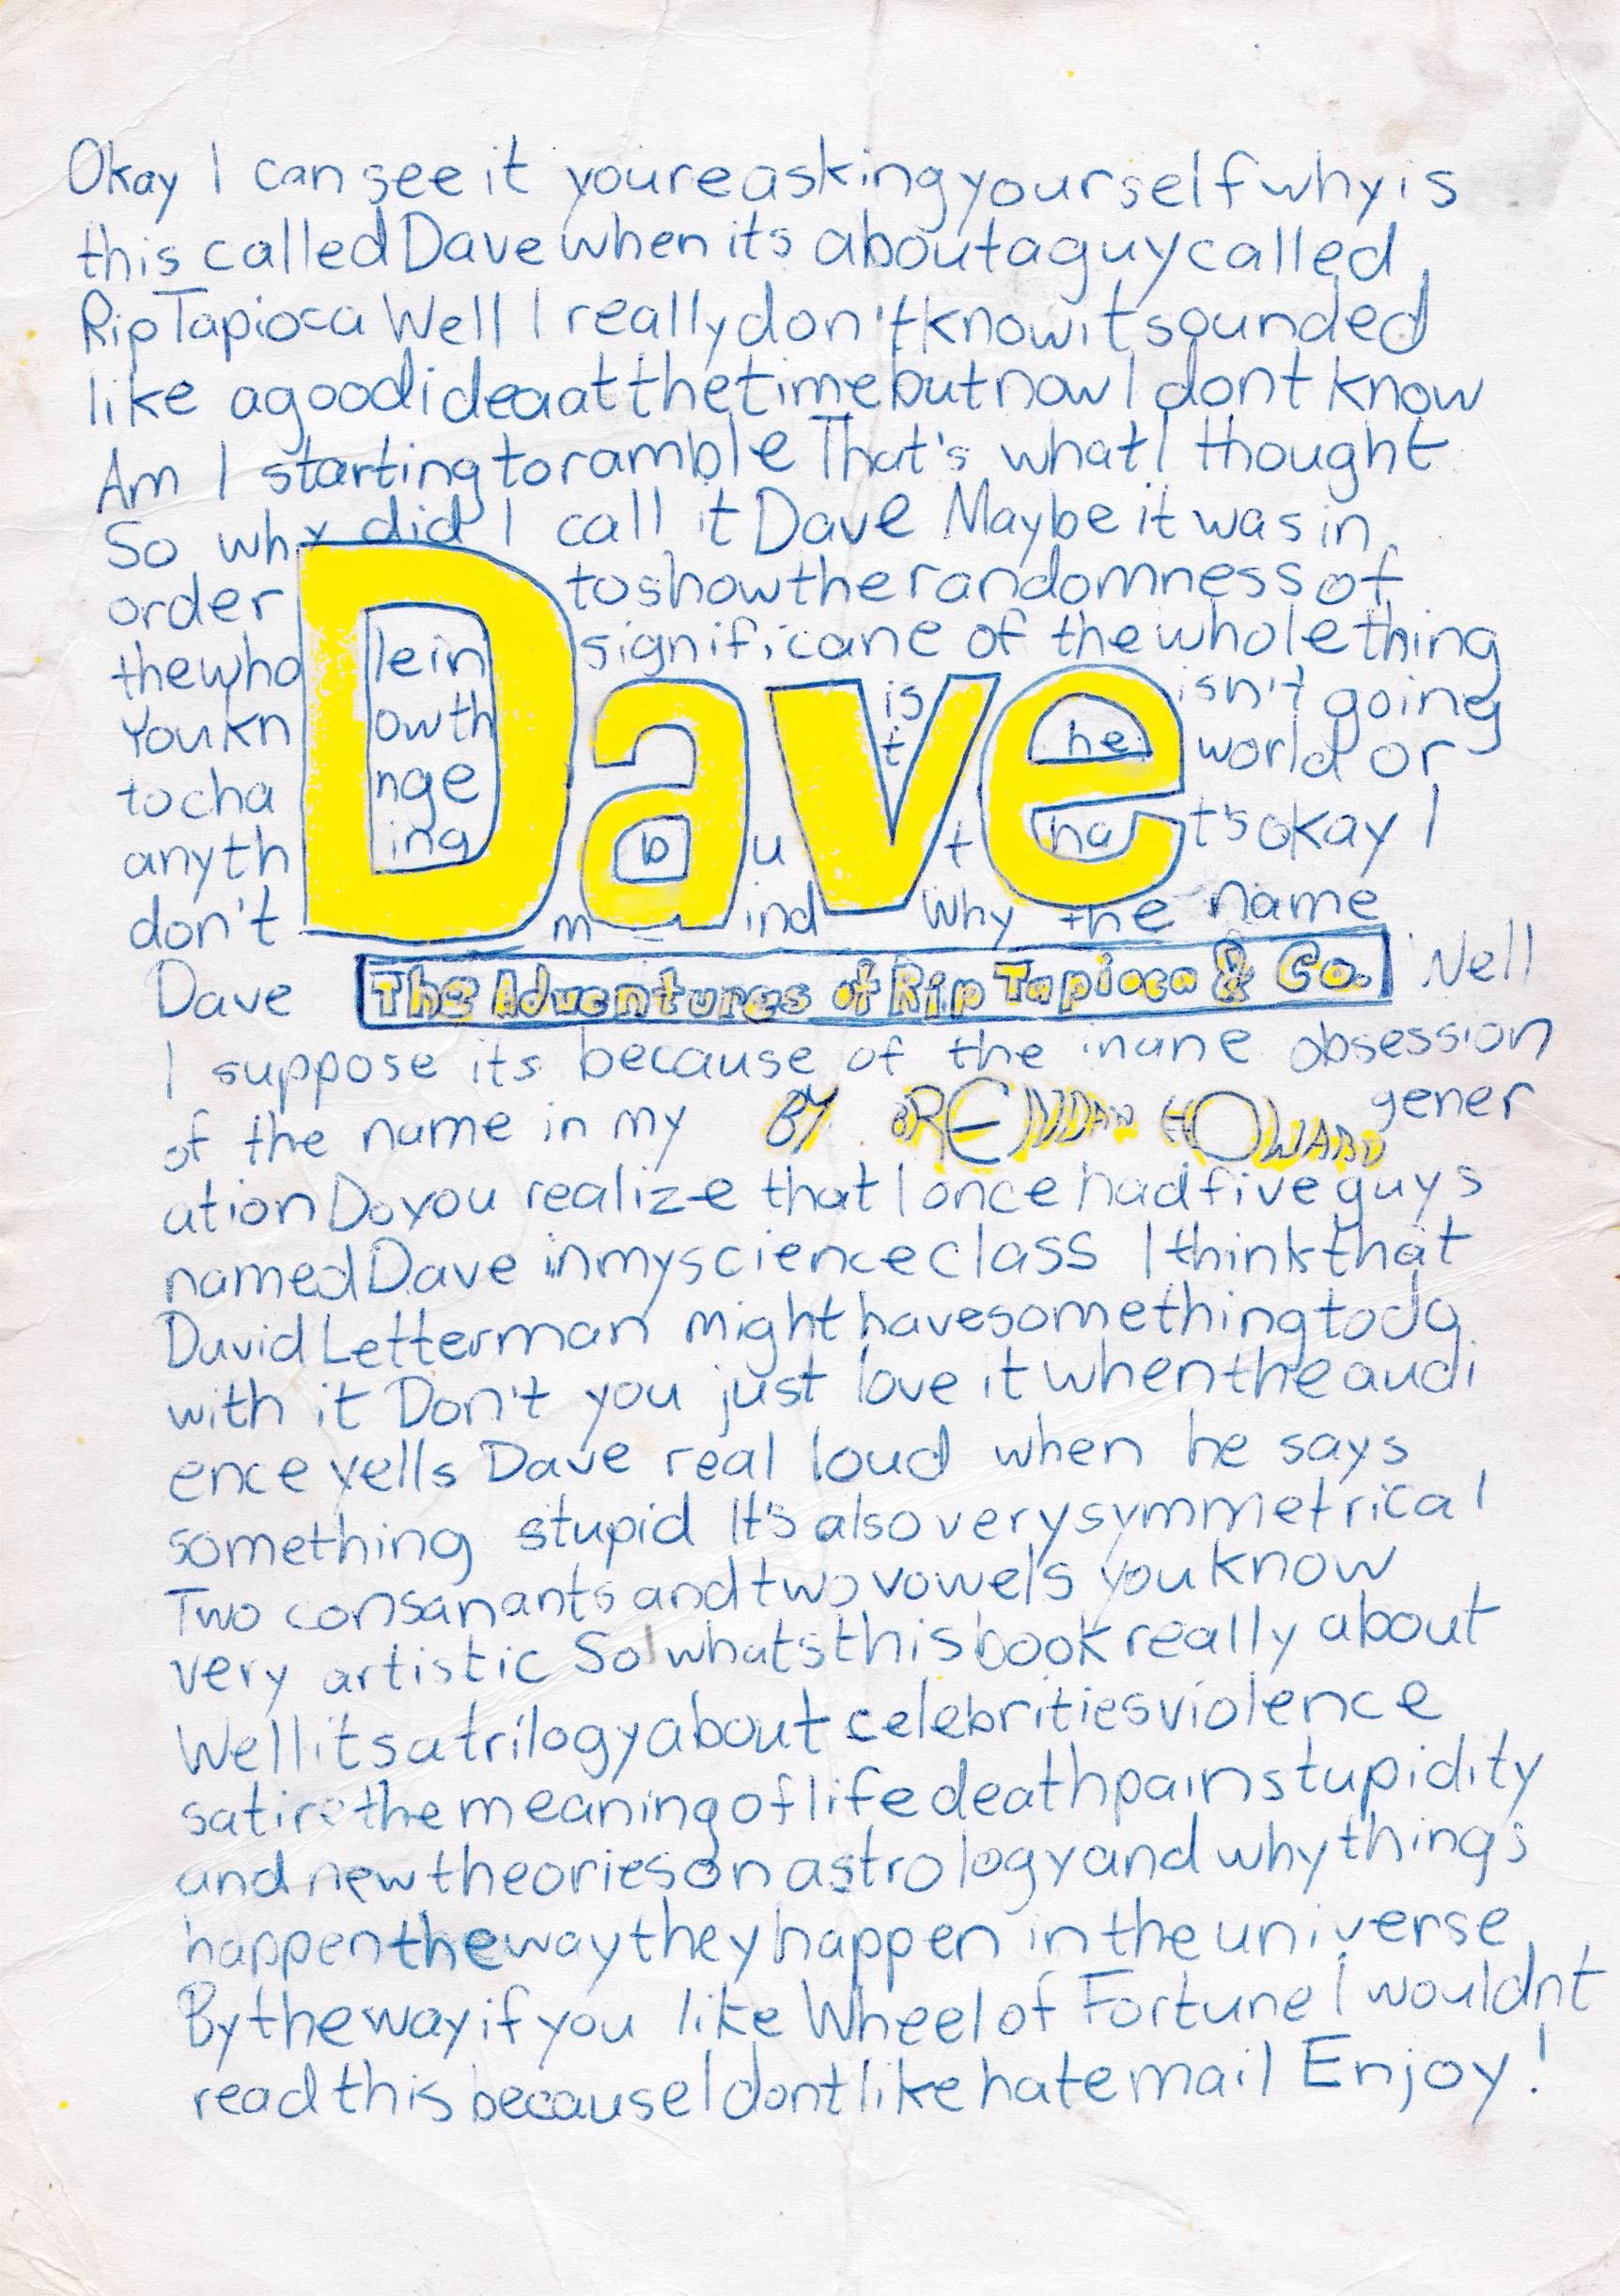 Okay I can see it youreaskingyourselfwhyis
this calledDavewhen its aboutaguycalled
RipTapioca Well I reallydon'tknowitsounded
like agoodideaatthetimebutnowI dont know
Am I startingtoramble That's whatI thought
So why did I call it Dave Maybe it was in
order toshowtherandomnessof
thewho lein significane of thewholething
Youkn owth is isn't going
tocha nge t he world or
anyth ing b u t tha t'sokay I
don't m ind Why the name
Dave
Dave Well
The Adventures of Rip Tapioca & Co.
I suppose its because of the inane obsession
of the name in my gener
BY BRENDAN HOWARD
ationDoyou realize thatIonce hadfiveguys
namedDave inmyscienceclass Ithinkthat
DavidLetterman mighthavesomethingtodo
with it Don't you just love itwhentheaudi
ence yells Dave real loud when he says
something stupid It's alsoverysymmetrical
Two consanants andtwovowels youknow
very artistic So whatsthisbookreally about
Wellitsatrilogyabout celebritiesviolence
satirethemeaningoflifedeathpainstupidity
and newtheoriesonastrologyandwhythings
happenthewaytheyhappen intheuniverse
Bythewayifyou like Wheelof Fortune I wouldnt
readthisbecauseIdontlikehatemail Enjoy!